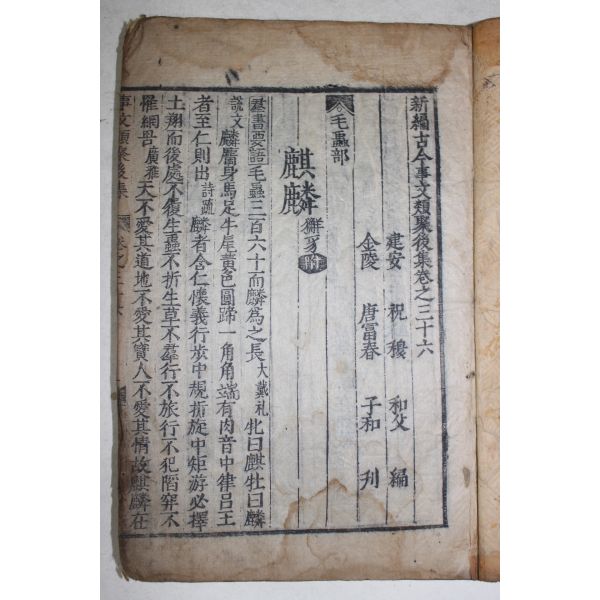 新編古今事文類聚後集卷之三十六
建安 祝穆 和父 編
金陵 唐富春 子和 刋
毛蟲部
麒麟 獬豸附
羣書要語 毛蟲三百六十而麟為之長 大戴礼 牝曰麒牡曰麟
說文 麟麕身馬足牛尾黃色圓蹄一角角端有肉音中律呂王
者至仁則出 詩疏 麟者含仁懷義行步中規折旋中矩游必擇
土翔而後處不履生蟲不折生草不羣行不旅行不犯陷穽不
罹網罟 廣雅 天不愛其道地不愛其寶人不愛其情故麒麟在
事文類聚後集 卷之三十六